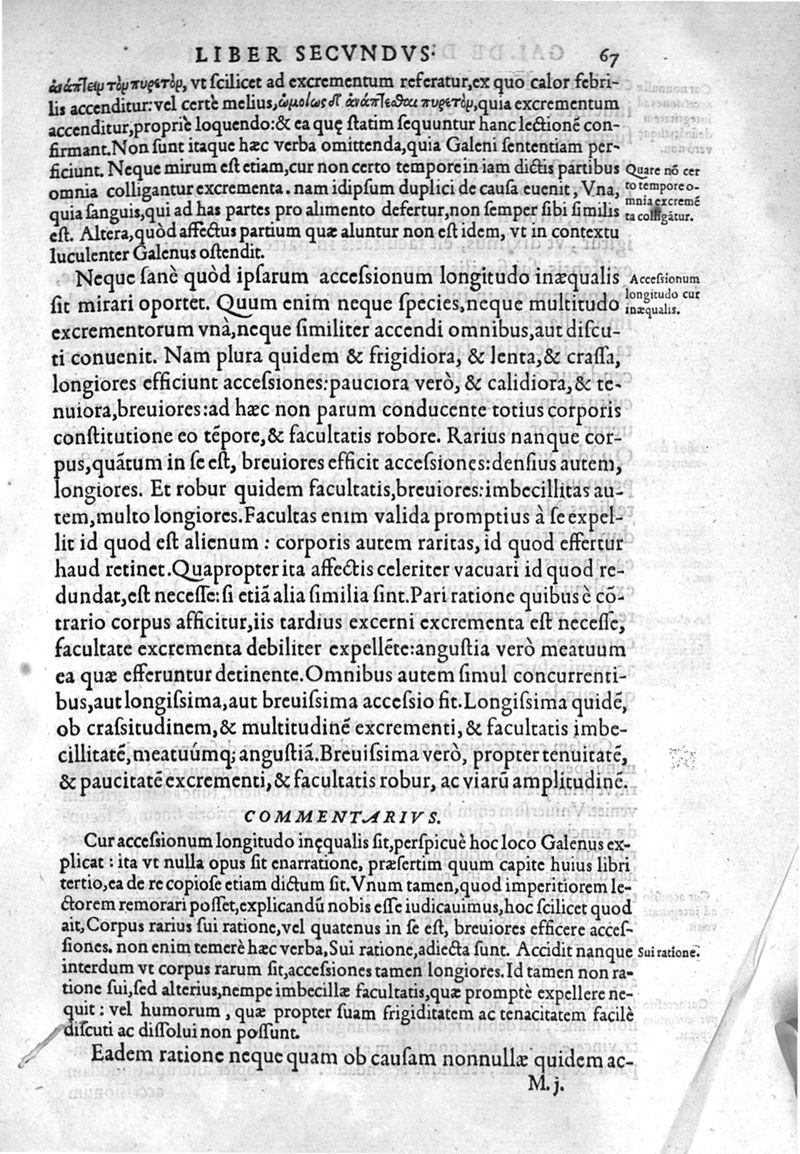 LIBER SECVNDVS. 67
ἀνάπτειν τὸν πυρετὸν, vt ſcilicet ad excrementum referatur, ex quo calor febri-
lis accenditur: vel certè melius, quia excrementum
accenditur, propriè loquendo: & ea quę ſtatim ſequuntur hanc lectionē con-
firmant. Non ſunt itaque hæc verba omittenda, quia Galeni ſententiam per-
ficiunt. Neque mirum eſt etiam, cur non certo tempore in iam dictis partibus
omnia colligantur excrementa. nam idipſum duplici de cauſa euenit, Vna,
quia ſanguis, qui ad has partes pro alimento defertur, non ſemper ſibi ſimilis
eſt. Altera, quòd affectus partium quæ aluntur non eſt idem, vt in contextu
luculenter Galenus oſtendit.
Quare nō cer
to tempore o-
mnia excremē
ta colligātur.
Neque ſanè quòd ipſarum acceſsionum longitudo inæqualis
ſit mirari oportet. Quum enim neque ſpecies, neque multitudo
excrementorum vnà, neque ſimiliter accendi omnibus, aut diſcu-
ti conuenit. Nam plura quidem & frigidiora, & lenta, & craſſa,
longiores efficiunt acceſsiones: pauciora verò, & calidiora, & te-
nuiora, breuiores: ad hæc non parum conducente totius corporis
conſtitutione eo tēpore, & facultatis robore. Rarius nanque cor-
pus, quātum in ſe eſt, breuiores efficit acceſsiones: denſius autem,
longiores. Et robur quidem facultatis, breuiores: imbecillitas au-
tem, multo longiores. Facultas enim valida promptius à ſe expel-
lit id quod eſt alienum: corporis autem raritas, id quod effertur
haud retinet. Quapropter ita affectis celeriter vacuari id quod re-
dundat, eſt neceſſe: ſi etiā alia ſimilia ſint. Pari ratione quibus è cō-
trario corpus afficitur, iis tardius excerni excrementa eſt neceſſe,
facultate excrementa debiliter expellēte: anguſtia verò meatuum
ea quæ efferuntur detinente. Omnibus autem ſimul concurrenti-
bus, aut longiſsima, aut breuiſsima acceſsio fit. Longiſsima quidē,
ob craſsitudinem, & multitudinē excrementi, & facultatis imbe-
cillitatē, meatuúmq; anguſtiā. Breuiſsima verò, propter tenuitatē,
& paucitatē excrementi, & facultatis robur, ac viarū amplitudinē.
Acceſsionum
longitudo cur
inæqualis.
COMMENTARIVS.
Cur acceſsionum longitudo inęqualis ſit, perſpicuè hoc loco Galenus ex-
plicat: ita vt nulla opus ſit enarratione, præſertim quum capite huius libri
tertio, ea de re copioſe etiam dictum ſit. Vnum tamen, quod imperitiorem le-
ctorem remorari poſſet, explicandū nobis eſſe iudicauimus, hoc ſcilicet quod
ait, Corpus rarius ſui ratione, vel quatenus in ſe eſt, breuiores efficere acceſ-
ſiones. non enim temerè hæc verba, Sui ratione, adiecta ſunt. Accidit nanque
interdum vt corpus rarum ſit, acceſsiones tamen longiores. Id tamen non ra-
tione ſui, ſed alterius, nempe imbecillæ facultatis, quæ promptè expellere ne-
quit: vel humorum, quæ propter ſuam frigiditatem ac tenacitatem facilè
diſcuti ac diſſolui non poſſunt.
Sui ratione.
Eadem ratione neque quam ob cauſam nonnullæ quidem ac-
M. j.